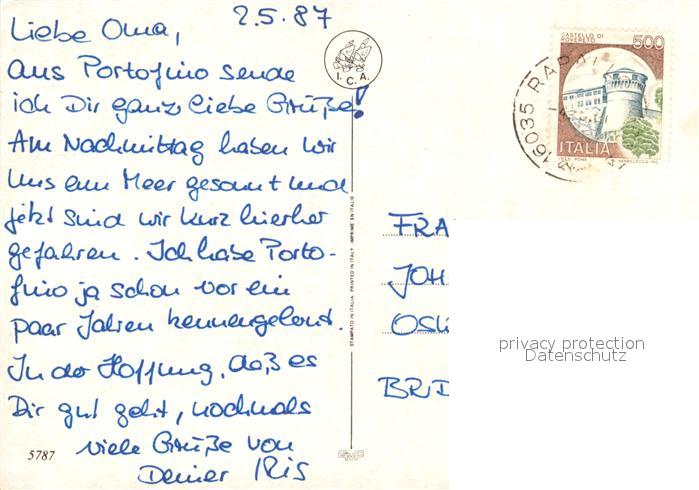 2.5.87
Liebe Oma,
aus Portofino sende
ich Dir ganz liebe Grüße!
Am Nachmittag haben wir
uns am Meer gesonnt und
jetzt sind wir kurz hierher
gefahren. Ich habe Porto-
fino ja schon vor ein
paar Jahren kennengelernt.
In der Hoffnung, daß es
Dir gut geht, nochmals
viele Grüße von
Deiner Iris
5787
I.C.A.
STAMPATO IN ITALIA - PRINTED IN ITALY - IMPRIME EN ITALIE
CASTELLO DI
ROVERETO
500
ITALIA
16035 RAPA
FRA
JOH
OSL
BRD
privacy protection
Datenschutz